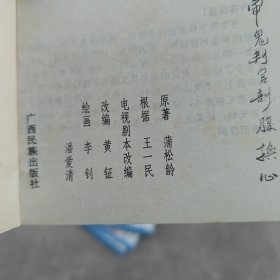 审鬼判官剖腹换心
原著 蒲松龄
根据 王一民
电视剧本改编
改编 黄钲
绘画 李钊
潘爱清
广西民族出版社